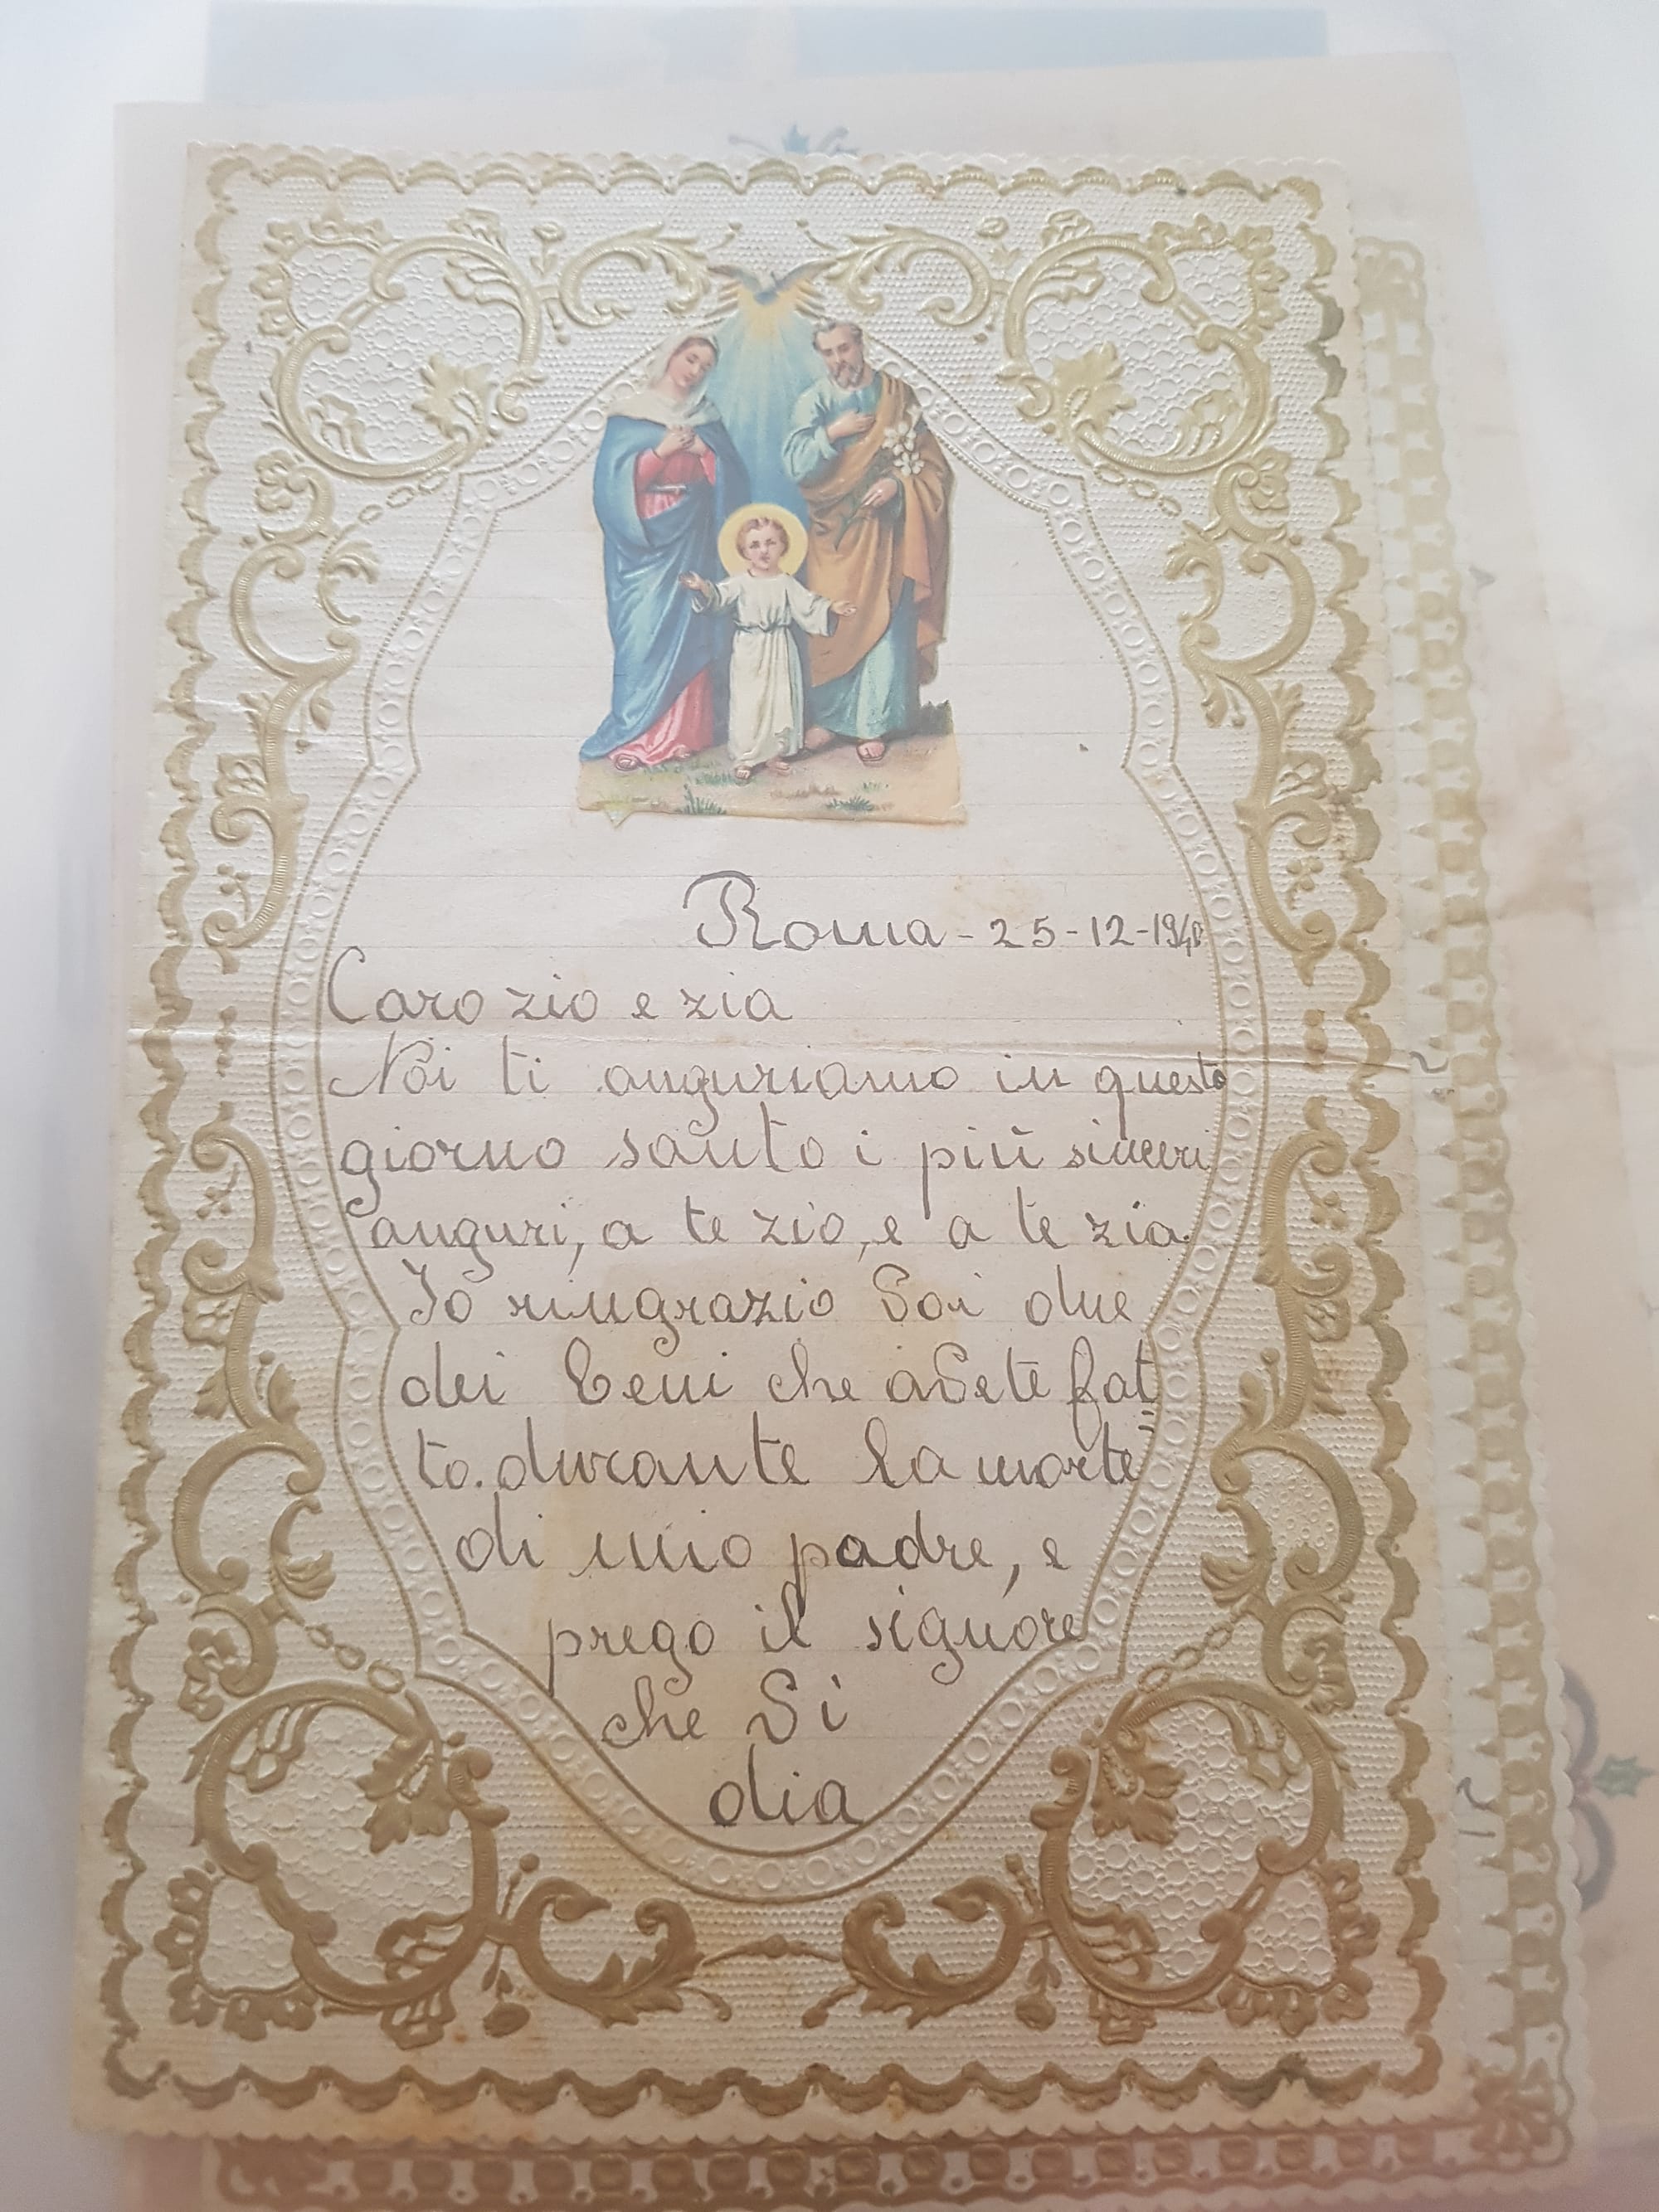 Roma - 25-12-1940
Caro zio e zia
Noi ti auguriamo in questo
giorno santo i più sinceri
auguri, a te zio, e a te zia.
Io ringrazio voi due
dei beni che avete fat=
to. durante la morte
di mio padre, e
prego il signore
che vi
dia